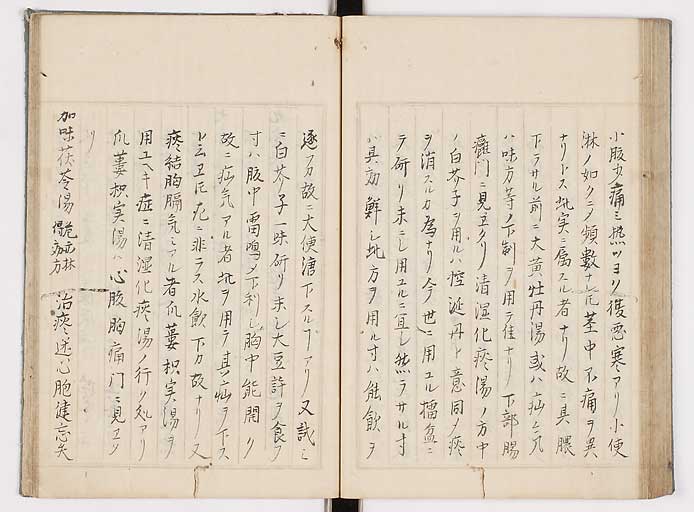 小腹少痛ミ熱ツヨク後悪寒アリ小便
淋ノ如クニノ頻数ナレ𪜈茎中不痛ヲ異
ナリトス此実ニ属スル者ナリ故ニ其腰
下ラサル前ニ大黄牡丹湯或ハ疝気
八味方等ノ下剤ヲ用テ佳ナリ下部腸
癰門ニ見エタリ清湿化痰湯ノ方中
ノ白芥子ヲ用ルハ控涎丹ト意同ク痰
ヲ消スルカ為ナリ今世ニ用ユル擂盆ニ
テ研リ末ニシ用ユルニ宜シ然ラサル寸
ハ其効鮮シ此方ヲ用ル寸ハ能飲ヲ
逐フカ故ニ大便溏下スルヿアリ又試ミ
ニ白芥子一味研リ末シ大豆許ヲ食フ
寸ハ腹中雷鳴〆下利シ胸中能開ク
故ニ疝気アル者此ヲ用テ其疝ヲ下ス
ト云𪜈疝ニ非ラス水飲下カ故ナリ又
痰結胸膈気ミアル者瓜蔞枳実湯ヲ
用ユヘキ症ニ清湿化痰湯ノ行ク処アリ
瓜蔞枳実湯ハ心腹胸痛門ニ見エタ
リ
加味茯苓湯 治痰迷心胞健忘失